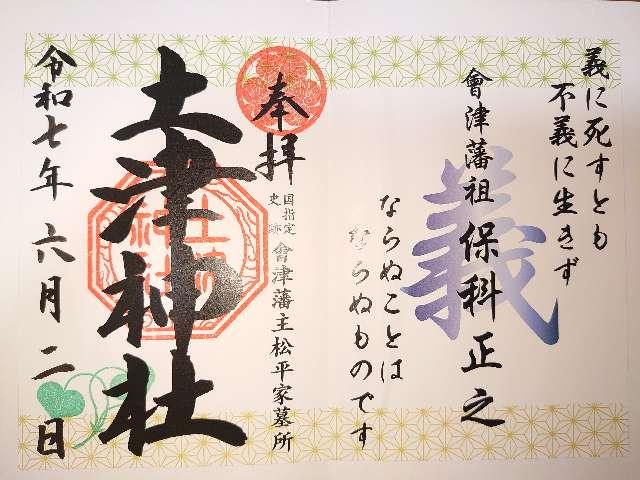 義に死すとも
不義に生きず
義
會津藩祖保科正之
ならぬことは
ならぬものです
奉拝
国指定
史跡
會津藩主松平家墓所
土津神社
令和七年六月二日